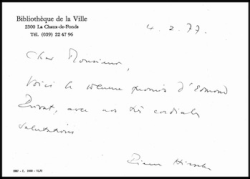 Bibliothèque de la Ville
2300 La Chaux-de-Fonds
Tél. (039) 22 47 96
4.2.77.
Cher Monsieur,
Voici le volume promis d'Edmond
avec nos très cordiales
salutations
Pierre Hirsch